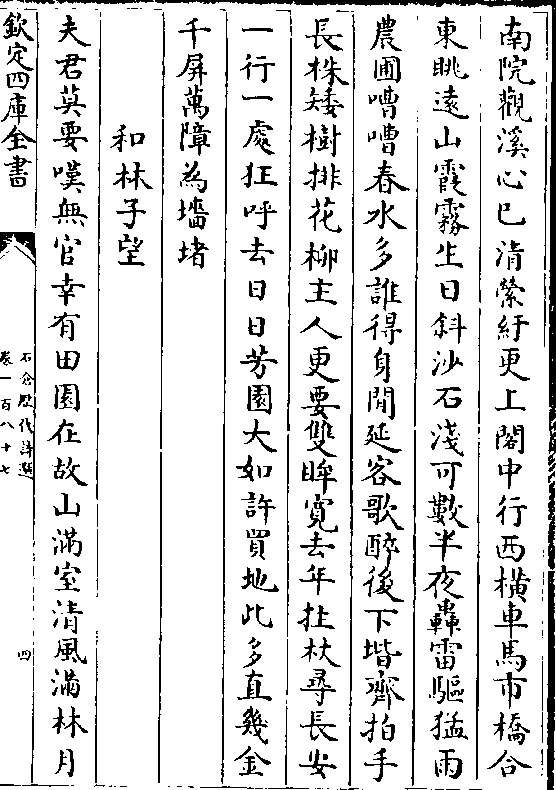 南院觀溪心已清縈紆更上閣中行西横車馬市橋合
東眺逺山霞霧生日斜沙石淺可數半夜轟雷驅猛雨
農圃嘈嘈春水多誰得身閒延客歌醉後下堦齊拍手
長株矮樹排花柳主人更要雙眸寛去年拄杖尋長安
一行一處狂呼去日日芳園大如許買地比多直幾金
千屏萬障為墻堵
和林子望
夫君莫要嘆無官幸有田園在故山滿室清風滿林月
欽定四庫全書
石倉歴代詩選
卷一百八十七
四